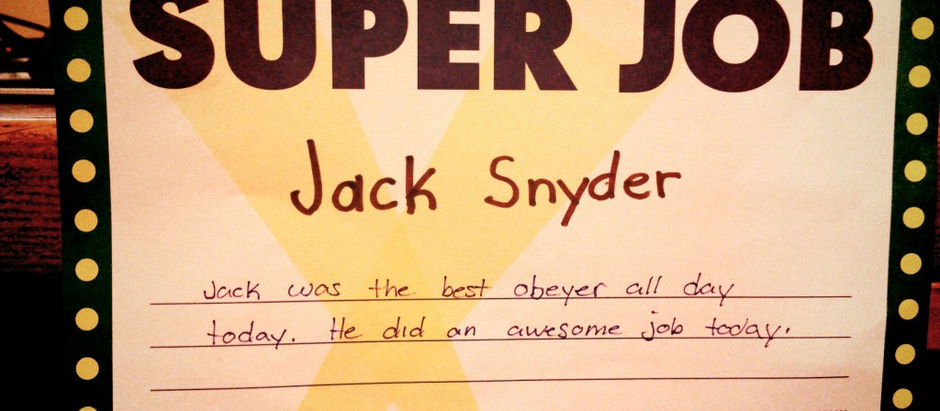 SUPER JOB
Jack Snyder
Jack was the best obeyer all day
today. He did an awesome job today.